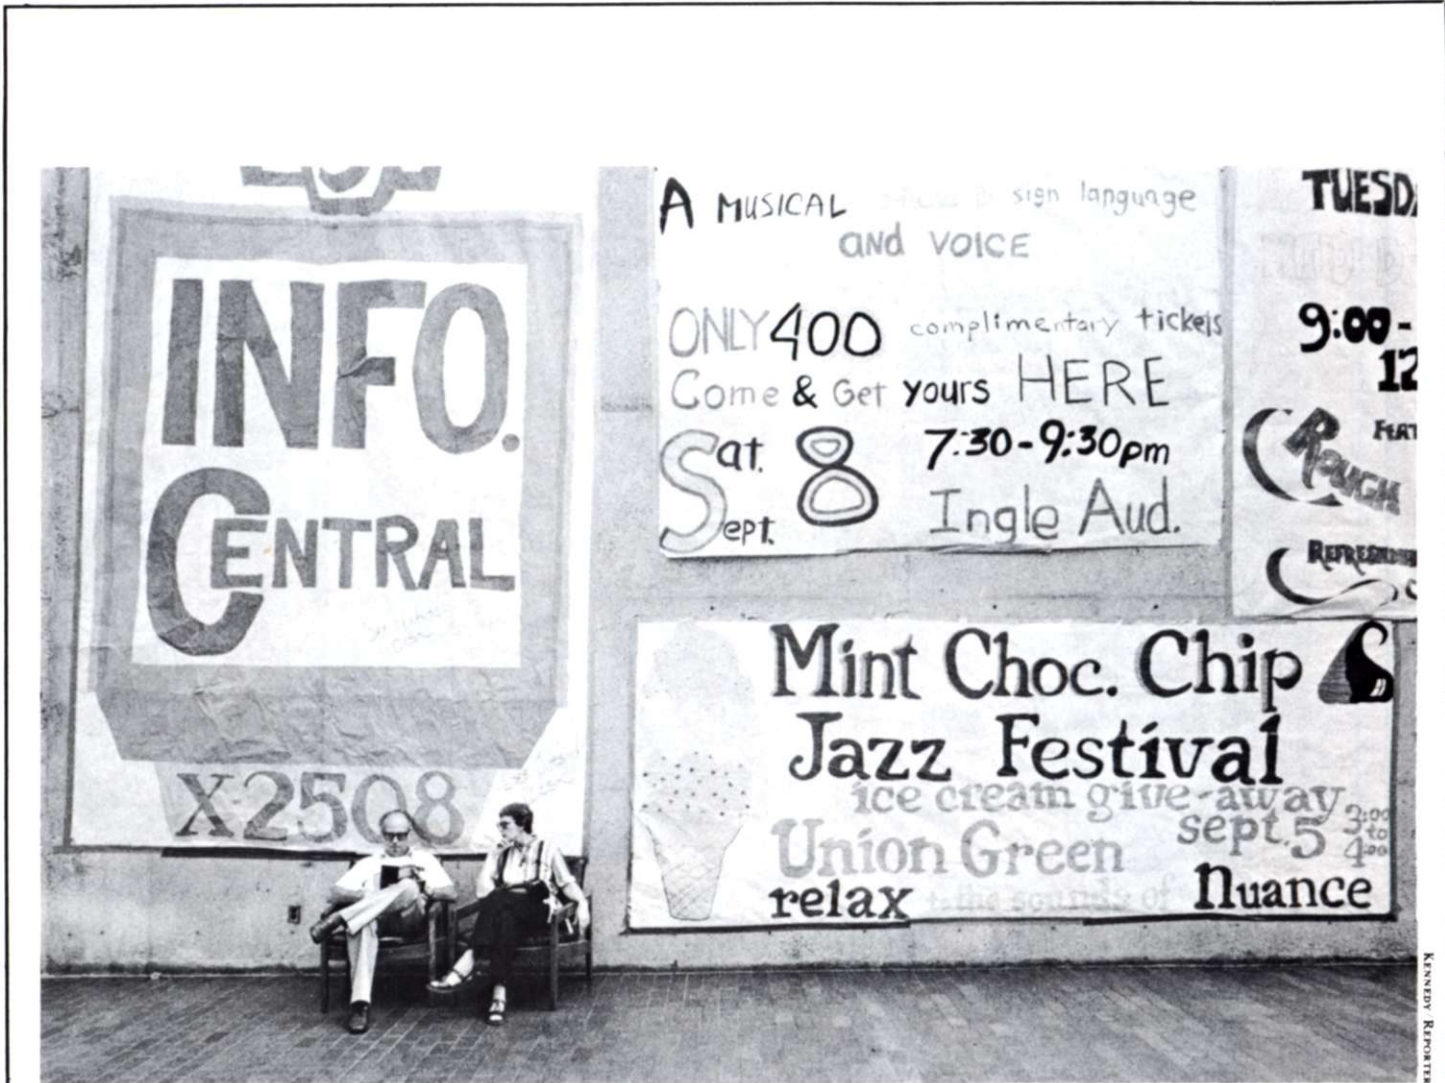 INFO.
CENTRAL
X-2508
A MUSICAL sign language
and VOICE
ONLY 400 complimentary tickets
Come & Get yours HERE
Sat. 8 7:30-9:30pm
Sept. Ingle Aud.
TUESDA
9:00-
12
FEAT
ROUGH
Mint Choc. Chip
Jazz Festival
ice cream give-away
Union Green sept. 5 3:00
to
4:00
relax the sounds of Nuance
KENNEDY/REPORTER